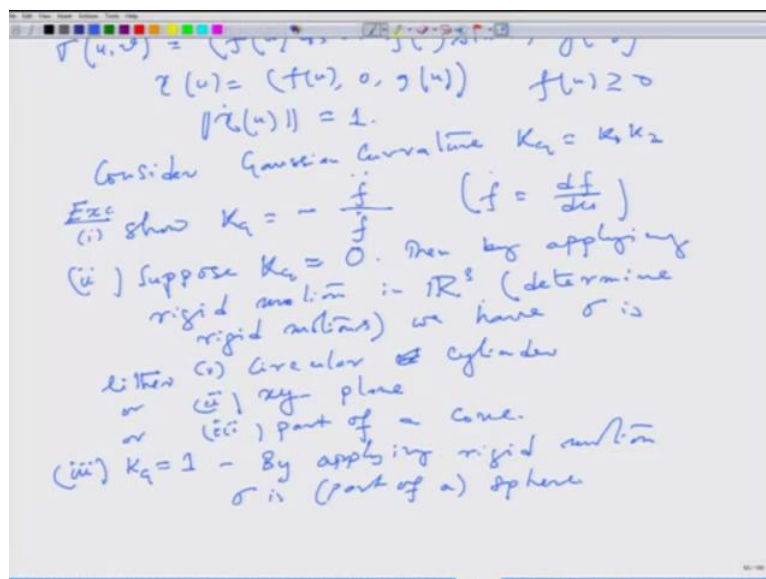 σ(u,v) = (f(u)
γ(u) = (f(u), 0, g(u))    f(u) ≥ 0
||γ̇(u)|| = 1.
Consider Gaussian Curvature K_G = K₁ K₂
Exc (i) show K_G = - f̈ / f    (ḟ = df/du)
(ii) Suppose K_G = 0. Then by applying
rigid motion in ℝ³ (determine
rigid motions) we have σ is
either (i) circular cylinder
or (ii) xy-plane
or (iii) part of a cone.
(iii) K_G = 1 - By applying rigid motion
σ is (part of a) sphere